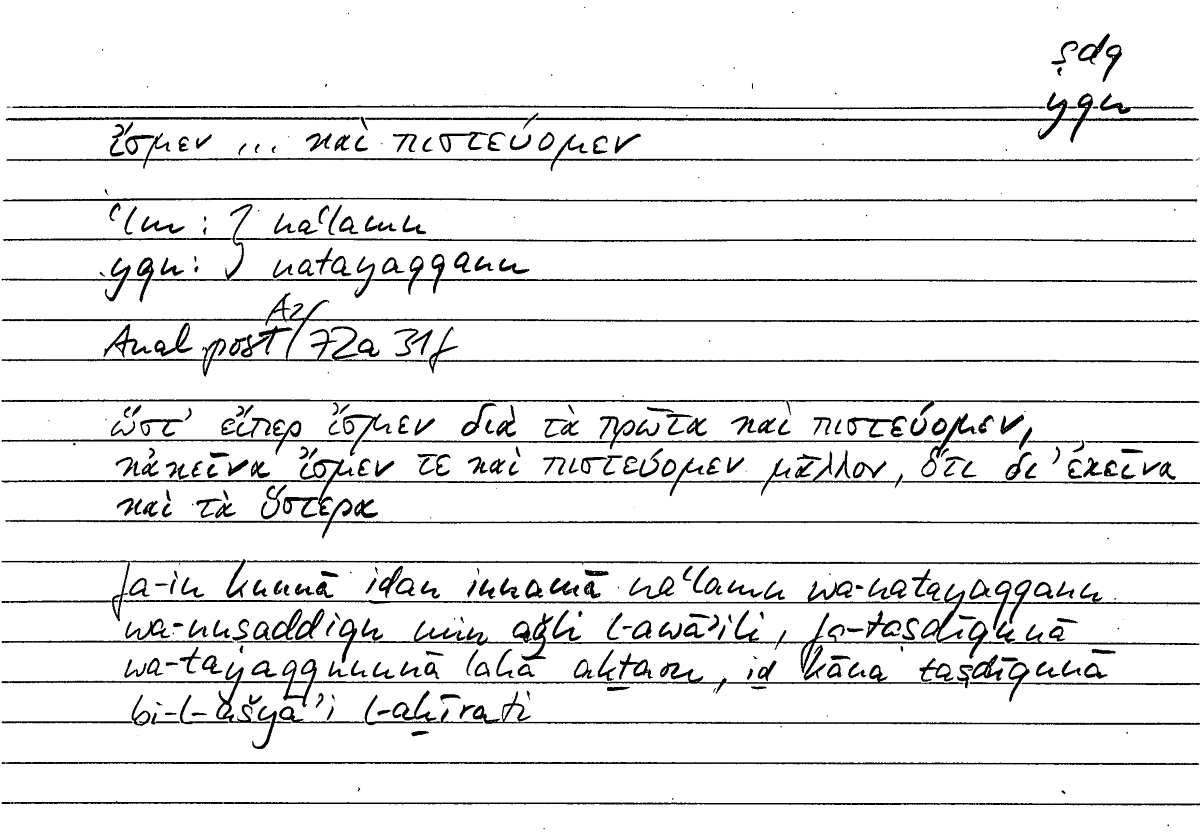 ṣdq
yqn
ἴσμεν ... καὶ πιστεύομεν
ʿlm : } naʿlamu
yqn : } natayaqqanu
Anal. post. A2, 72a 31f
ὥστ’ εἴπερ ἴσμεν διὰ τὰ πρῶτα καὶ πιστεύομεν,
κἀκεῖνα ἴσμεν τε καὶ πιστεύομεν μᾶλλον, ὅτι δι’ ἐκεῖνα
καὶ τὰ ὕστερα
fa-in kunnā iḏan innamā naʿlamu wa-natayaqqanu
wa-nuṣaddiqu min aǧli l-awāʾili, fa-taṣdīqunā
wa-tayaqqununā lahā akṯaru, iḏ kāna taṣdīqunā
bi-l-ašyāʾi l-aḫīrati